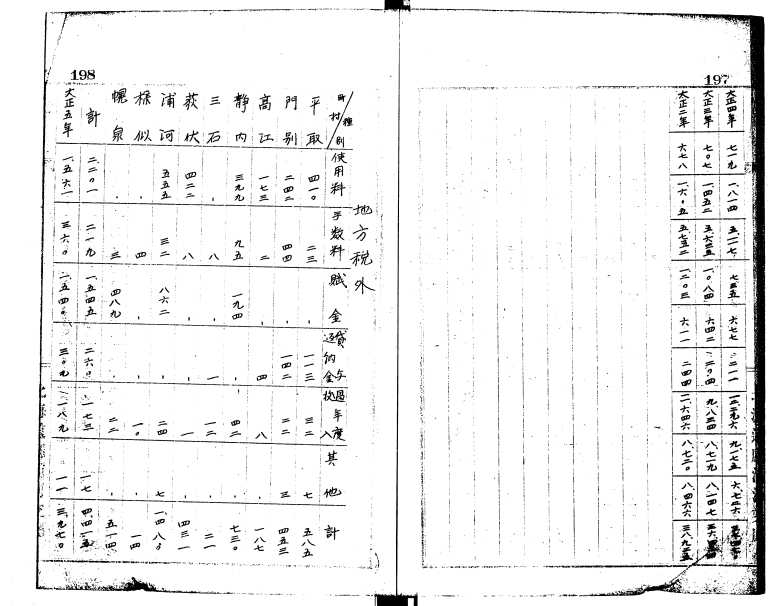 197
大正四年 七一九 一、八一四 五、二一七 七三五 六七七 二一一 一二、二九六 九、一七五 六、七二六
大正三年 七〇七 一、四五二 五、六三五 一、〇八四 六四二 二〇四 九、八三四 八、七一九 八、一四七
大正二年 六七八 一、六〇五 五、七五二 一、二〇三 六一一 二四四 二、六四六 八、七二〇 八、四六六 三八、九二五
198
地方税外
町村 種別 使用料 手数料 賦金 貸与返納金 過年度収入 其他 計
平取 四一〇 二三 、 一一三 三二 七 五八五
門別 二四二 四四 、 一四二 二二 三 四五三
高江 一七三 二 、 四 八 、 一八七
静内 三九九 九五 一九四 、 四二 、 七三〇
三石 、 八 、 一 一二 、 二一
荻伏 四二二 八 、 、 一 、 四三一
浦河 五五五 三二 八六二 、 二四 七 一、四八〇
様似 、 四 、 、 一〇 、 一四
幌泉 、 三 四八九 、 二二 、 五一四
計 二、二〇一 二一九 一、五四五 二六〇 一七三 一七 四、四一五
大正五年 一、五六一 三六〇 一、五四〇 三〇九 一八九 一一 三、九七〇